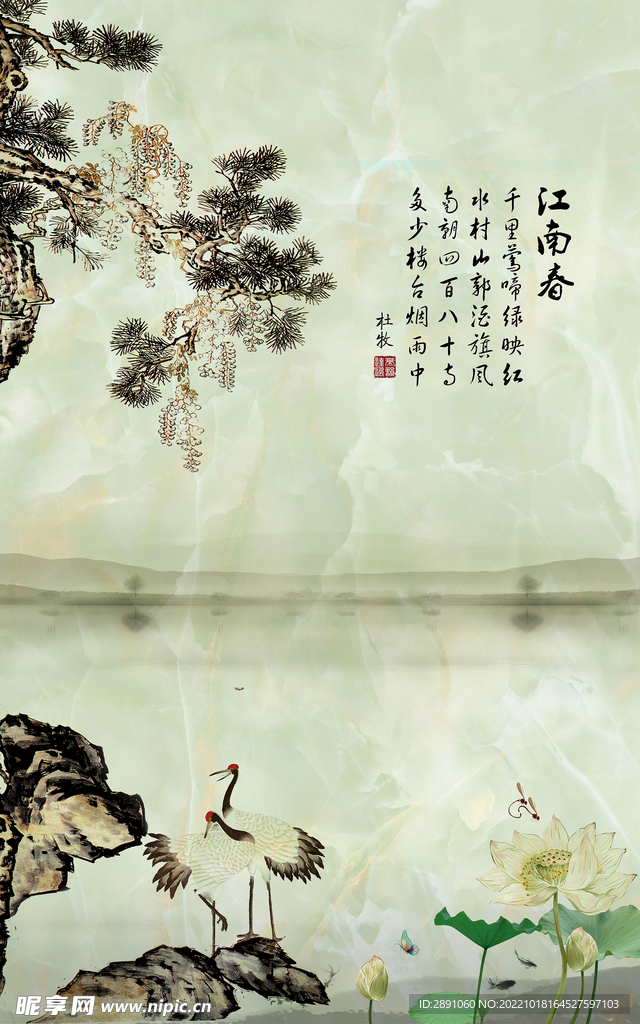 江南春
千里莺啼绿映红
水村山郭酒旗风
南朝四百八十寺
多少楼台烟雨中
杜牧
昵享网 www.nipic.cn
ID:2891060 NO:20221018164527597103